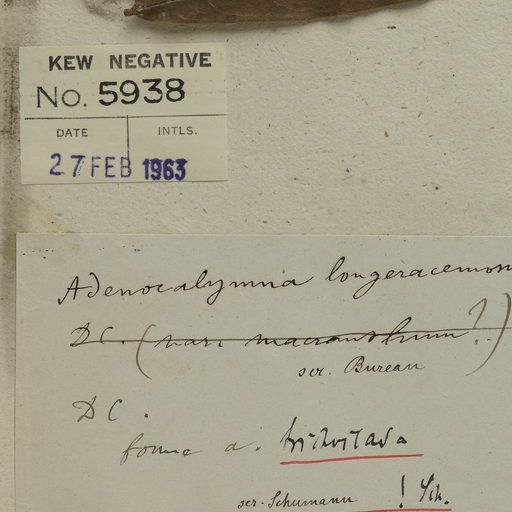 KEW NEGATIVE
No. 5938
DATE INTLS.
27 FEB 1963
Adenocalymna longeracemosum
DC. (var. macranthum?.)
scr. Bureau
DC.
forma a.
scr. Schumann ! Sch.